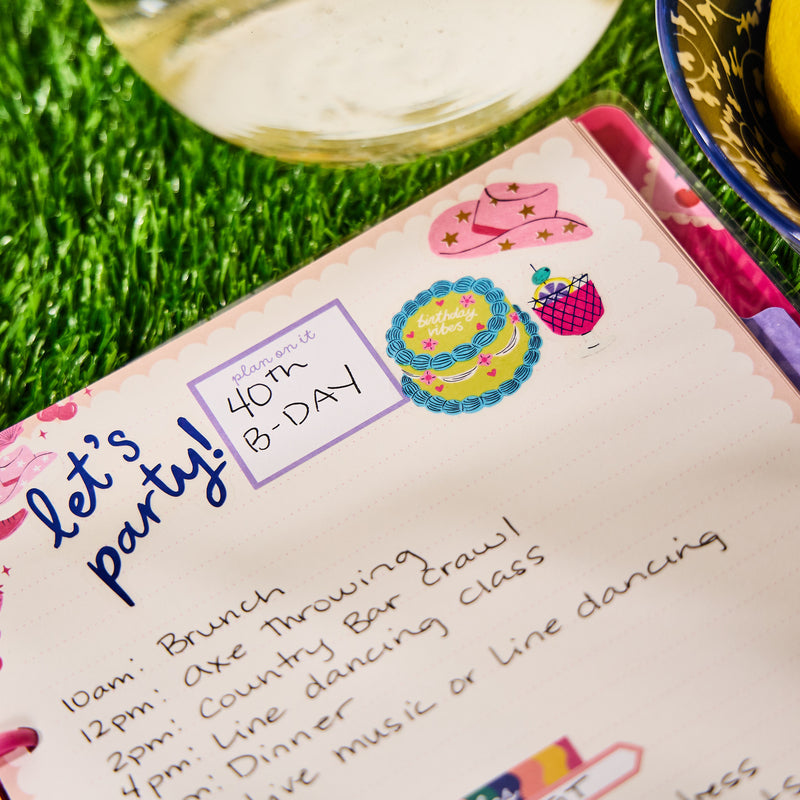 let's
party!
plan on it
40th
B-DAY
birthday
vibes
10am: Brunch
12pm: axe throwing
2pm: Country Bar Crawl
4pm: Line dancing class
Dinner
live music or line dancing